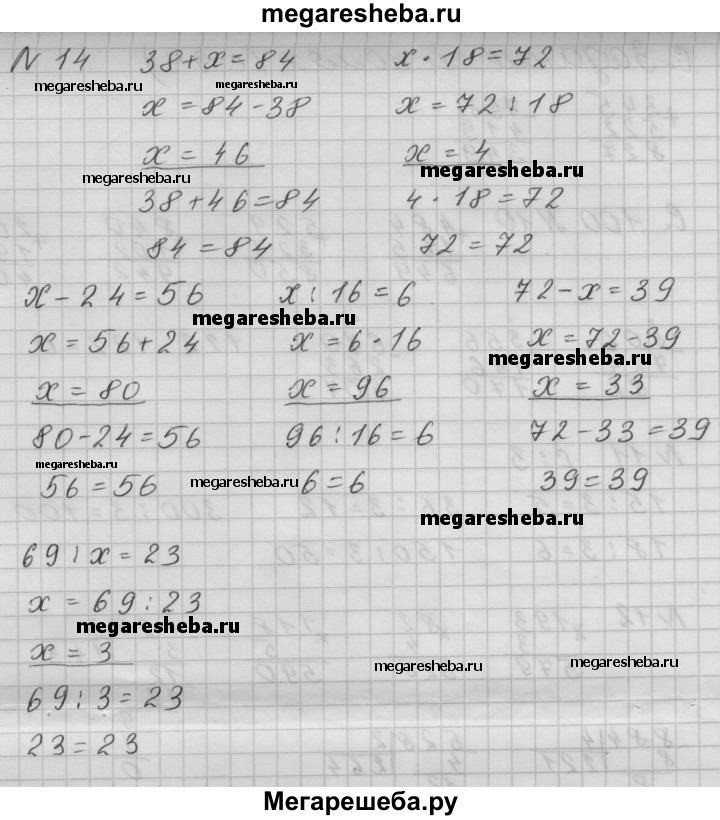 megaresheba.ru
N 14 38+x=84 x·18=72
megaresheba.ru megaresheba.ru
x=84-38 x=72:18
x=46 x=4
megaresheba.ru megaresheba.ru
38+46=84 4·18=72
84=84 72=72
x-24=56 x:16=6 72-x=39
megaresheba.ru
x=56+24 x=6·16 x=72-39
megaresheba.ru
x=80 x=96 x=33
80-24=56 96:16=6 72-33=39
megaresheba.ru megaresheba.ru
56=56 6=6 39=39
megaresheba.ru
69:x=23
x=69:23
megaresheba.ru
x=3
megaresheba.ru megaresheba.ru
69:3=23
23=23
Мегарешеба.ру